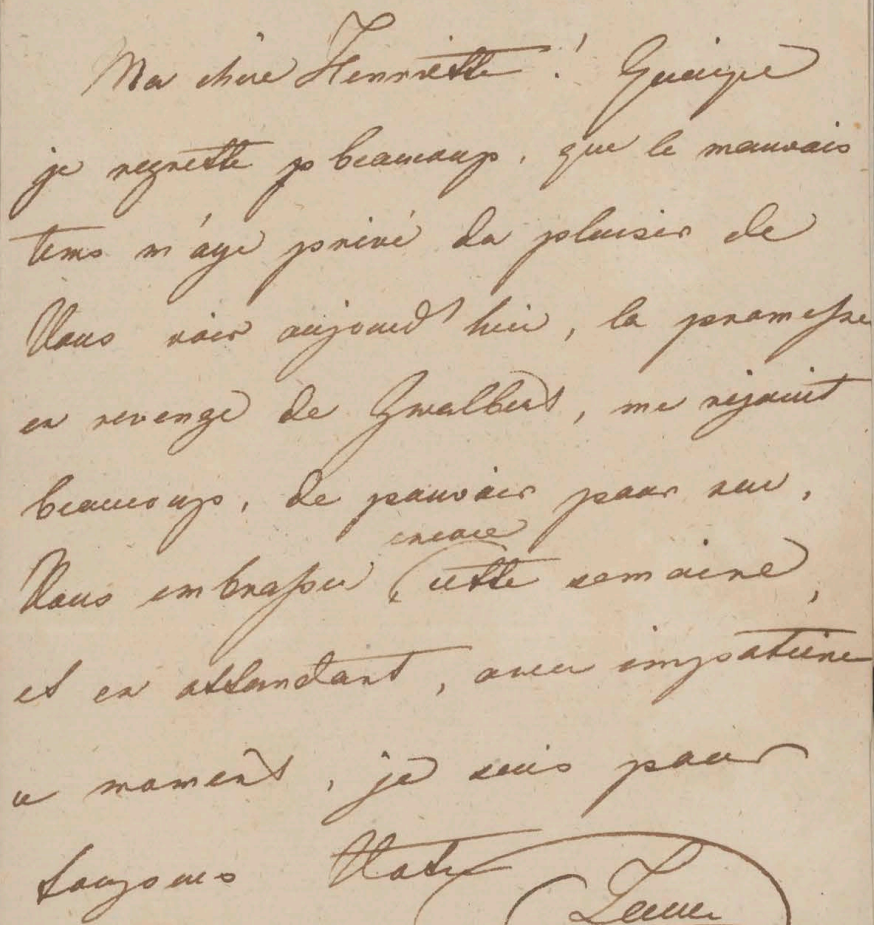 Ma chère Henriette! Quoique
je regrette beaucoup, que le mauvais
tems m'aye privé du plaisir de
Vous voir aujourd'hui, la promesse
en revenge de, me rejouit
beaucoup, de pouvoir pour sur,
Vous embrasser encore cette semaine,
et en attendant, avec impatience
ce moment, je suis pour
toujours Votre